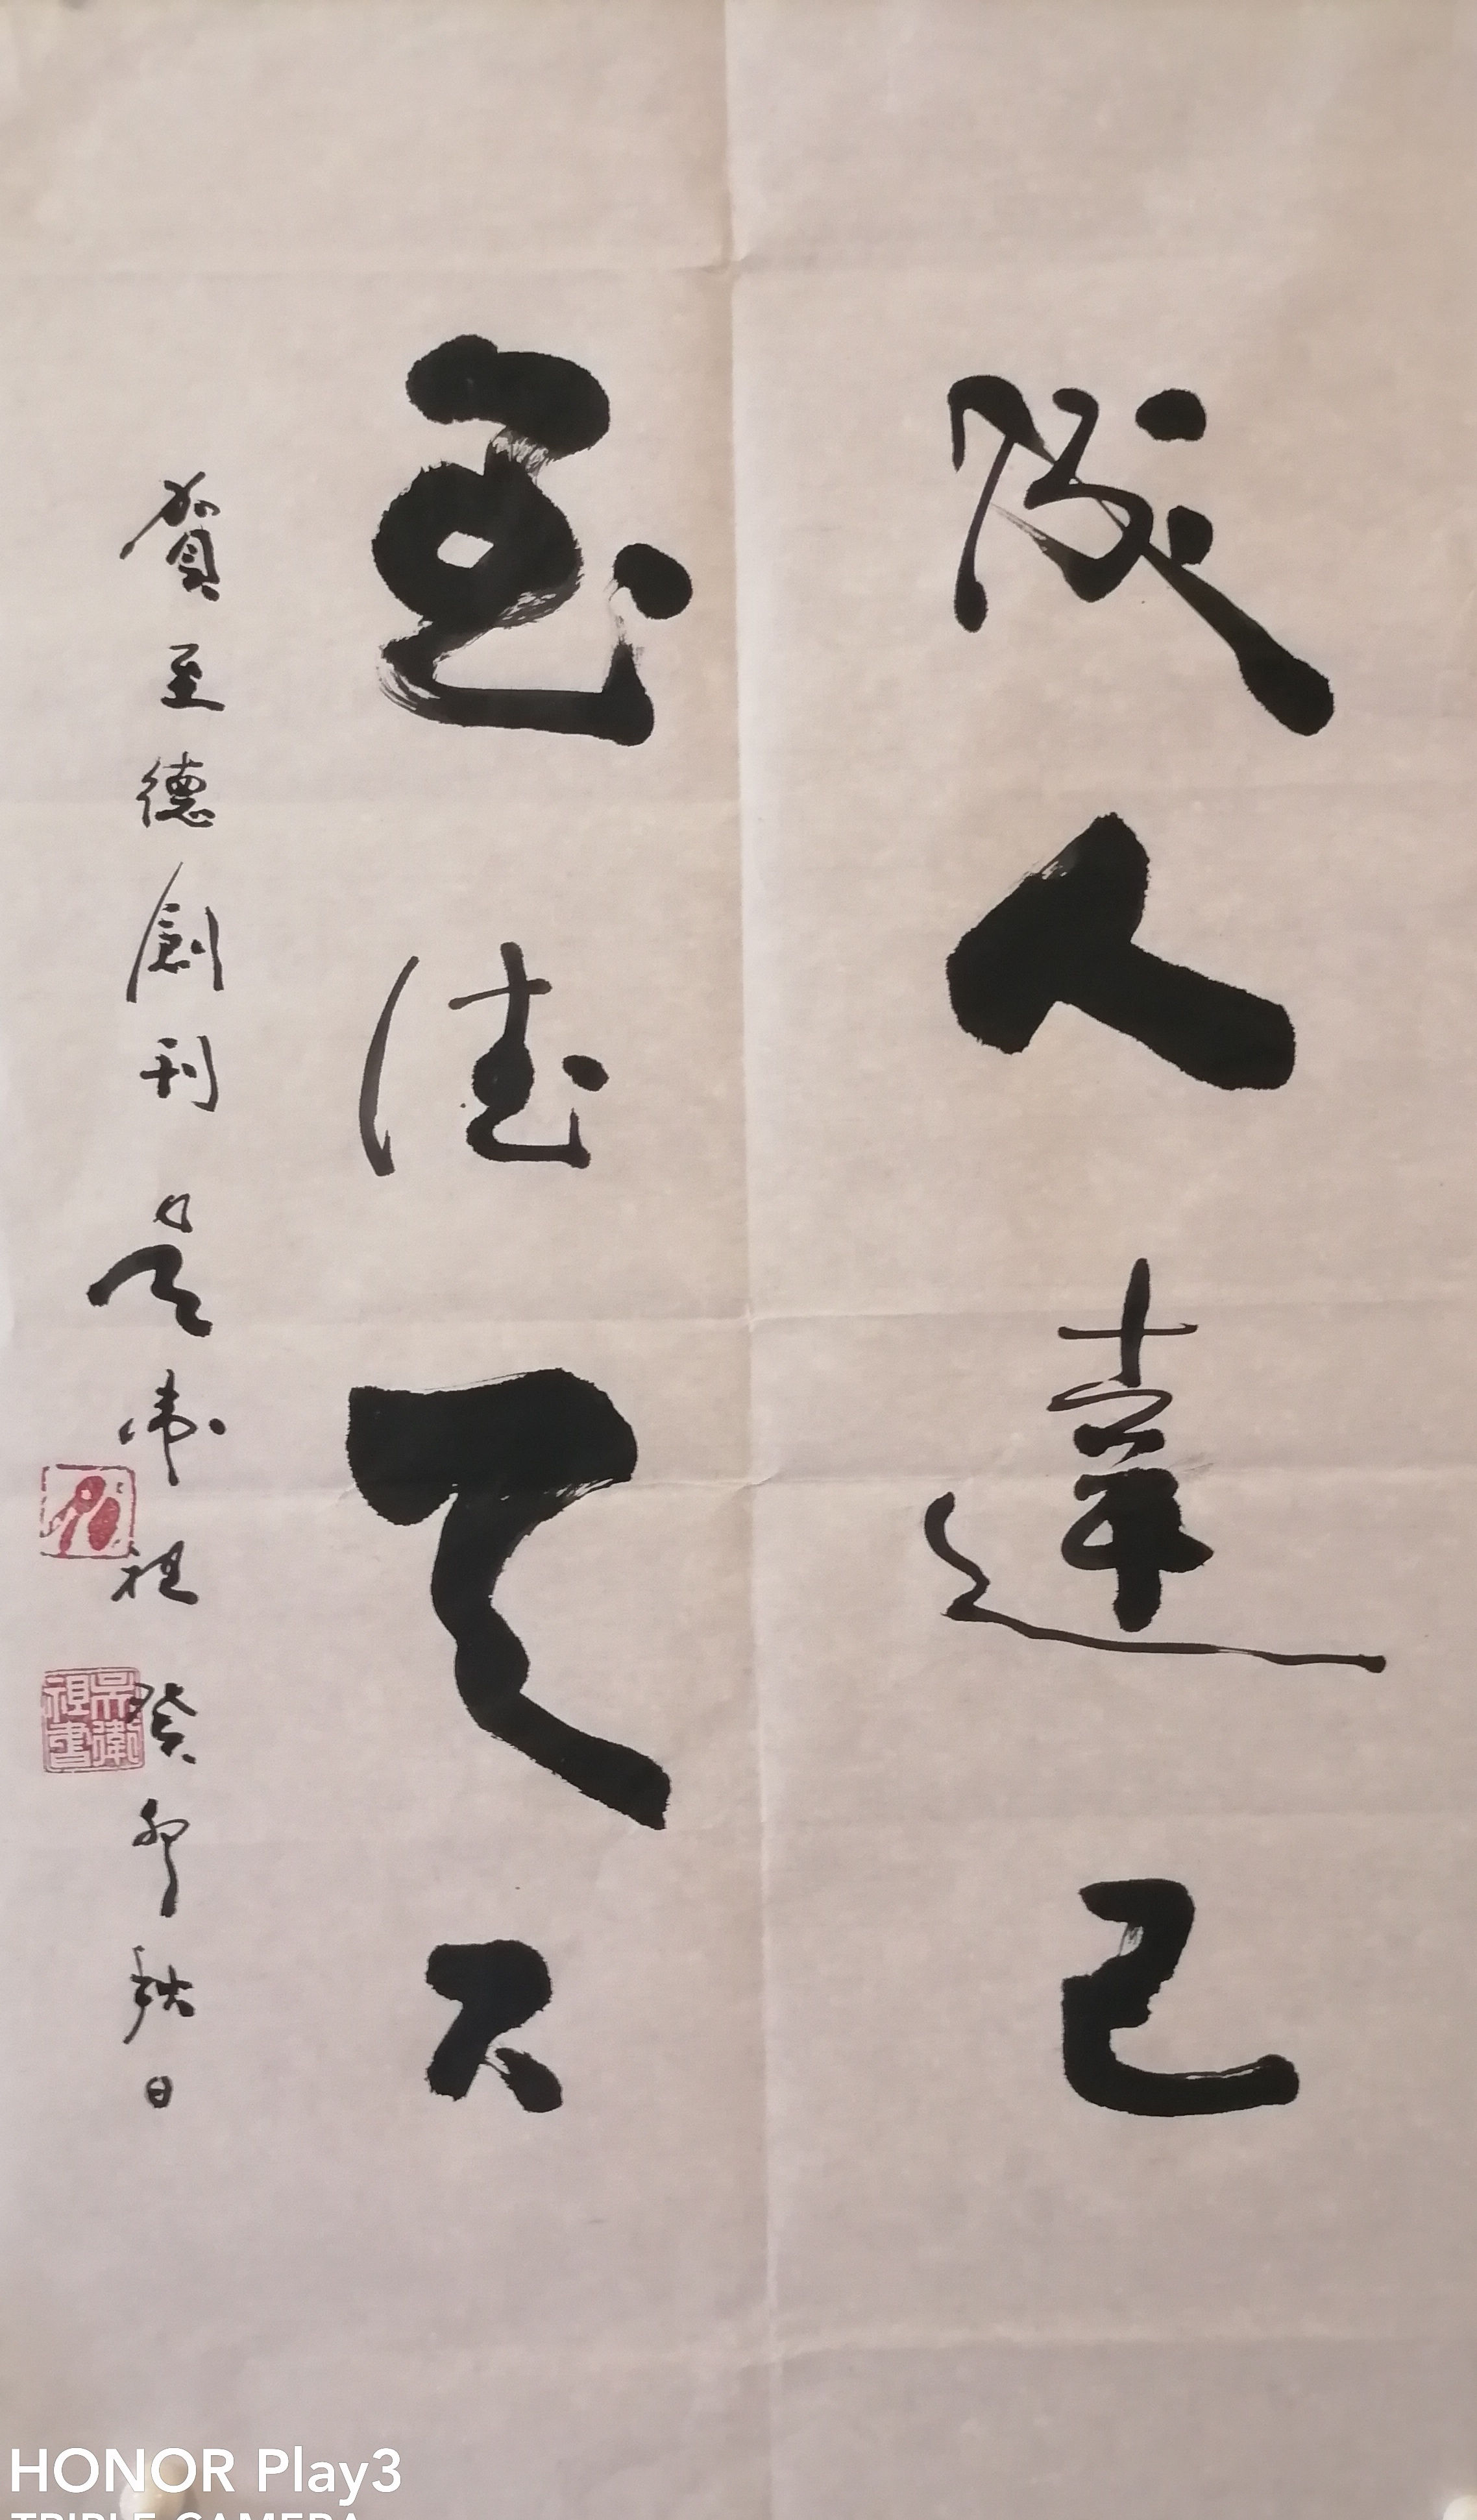 成人達己
至德天下
賀至德創刊吴衛祖癸卯秋日
吴衛祖書
HONOR Play3
TRIPLE CAMERA